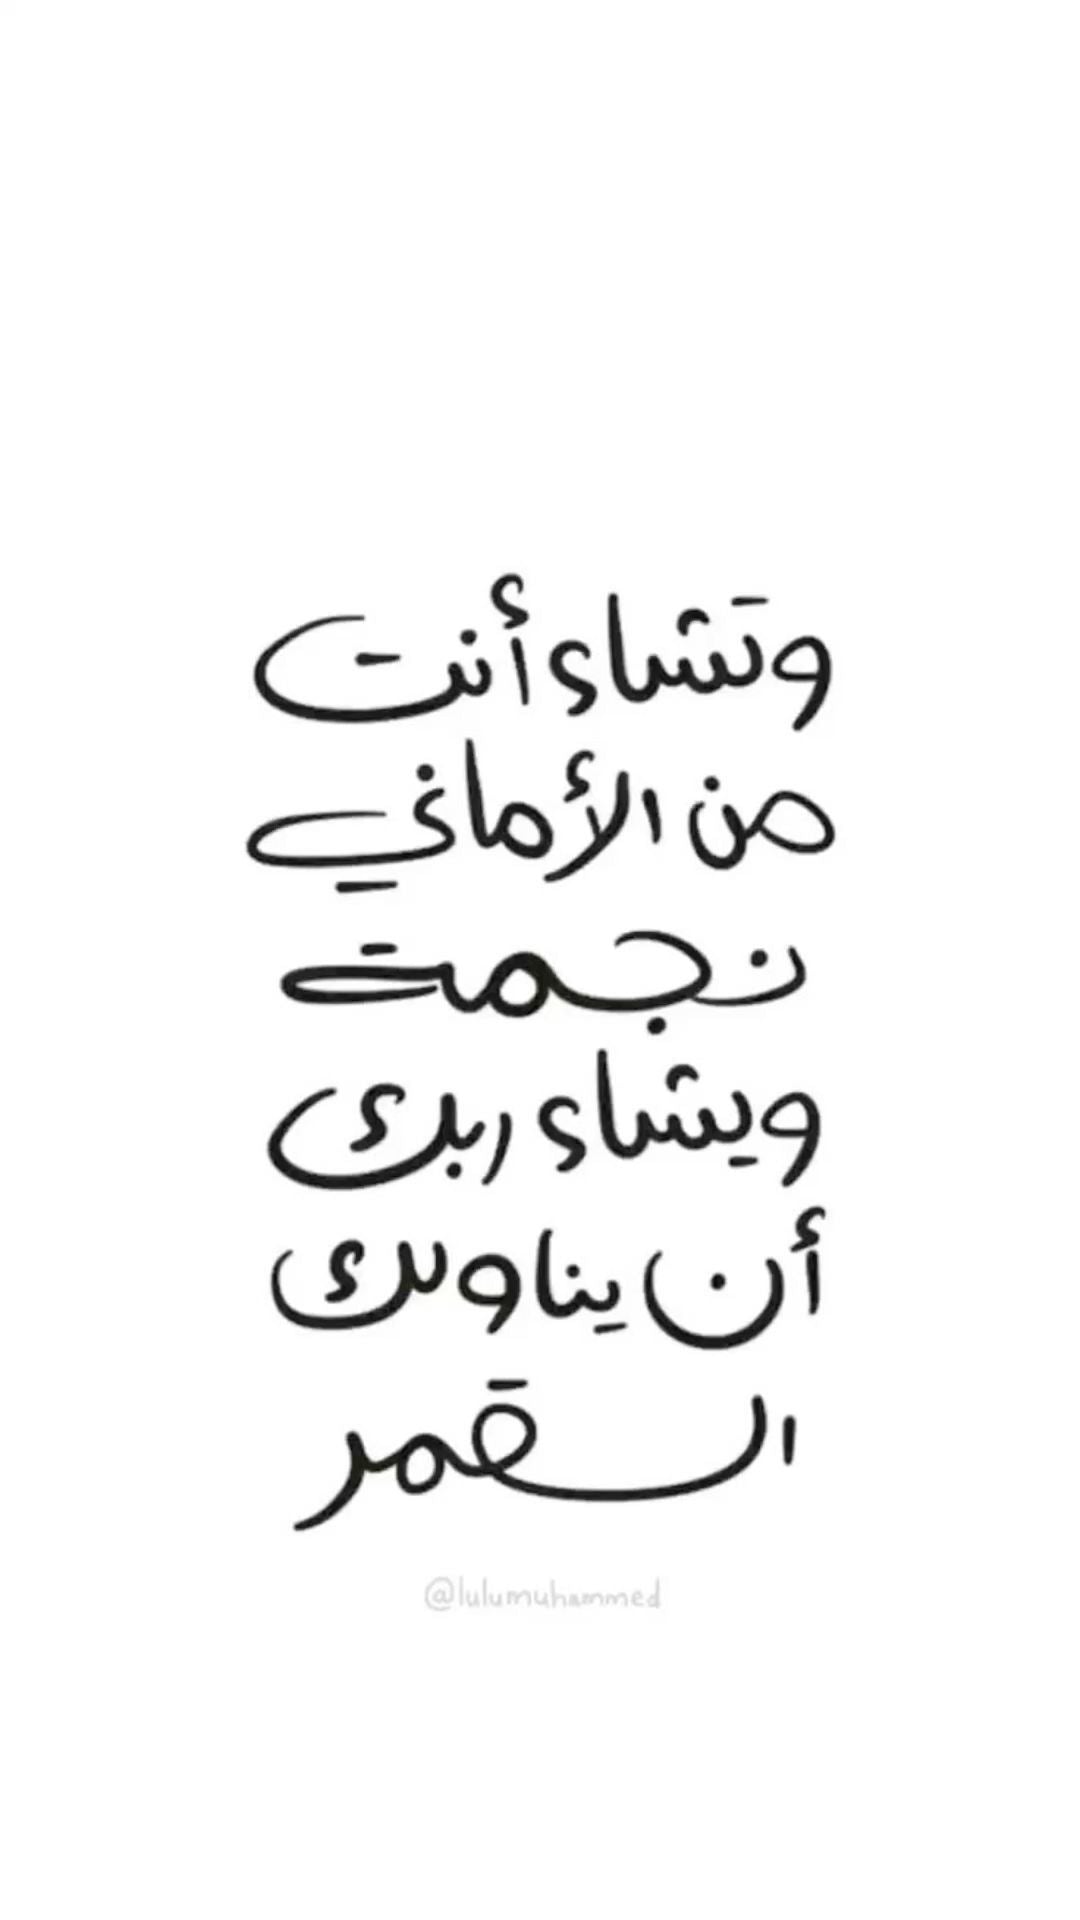 وتشاء أنت
من الأماني
نجمة
ويشاء ربك
أن يناولك
القمر
@lulumuhammed